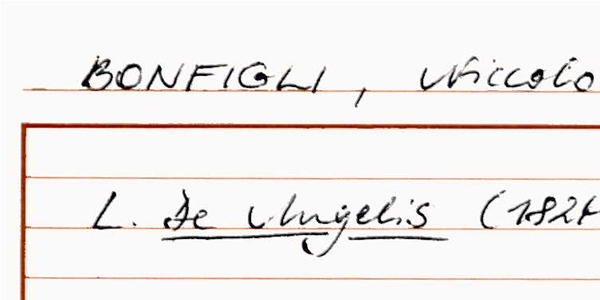 BONFIGLI, Niccolo
L. De Angelis (182